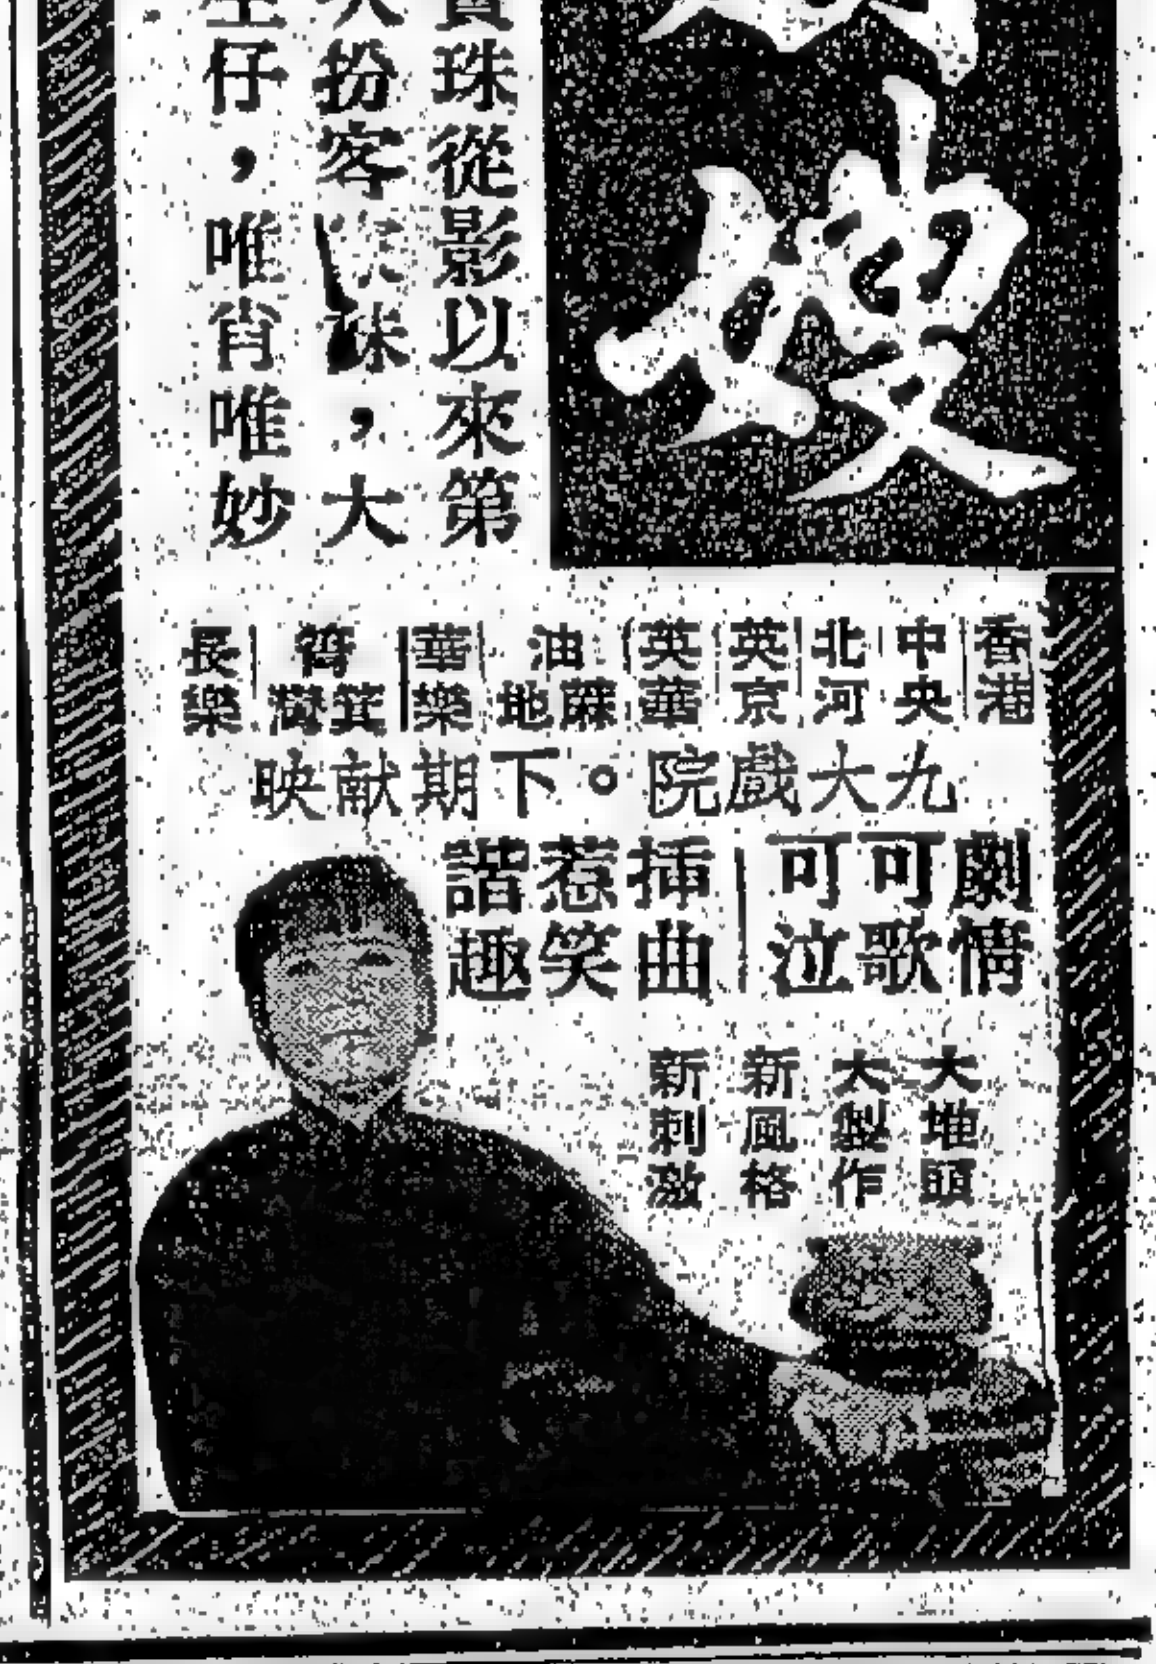 嫂
珠從影以來第
扮客家妹，大
仔，唯肖唯妙
香港｜中央｜北河｜英京｜英華｜油麻地｜華樂｜筲箕灣｜長樂
九大戲院。下期献映
劇情可歌可泣｜挿曲惹笑諧趣
大堆頭
大製作
新風格
新刺激